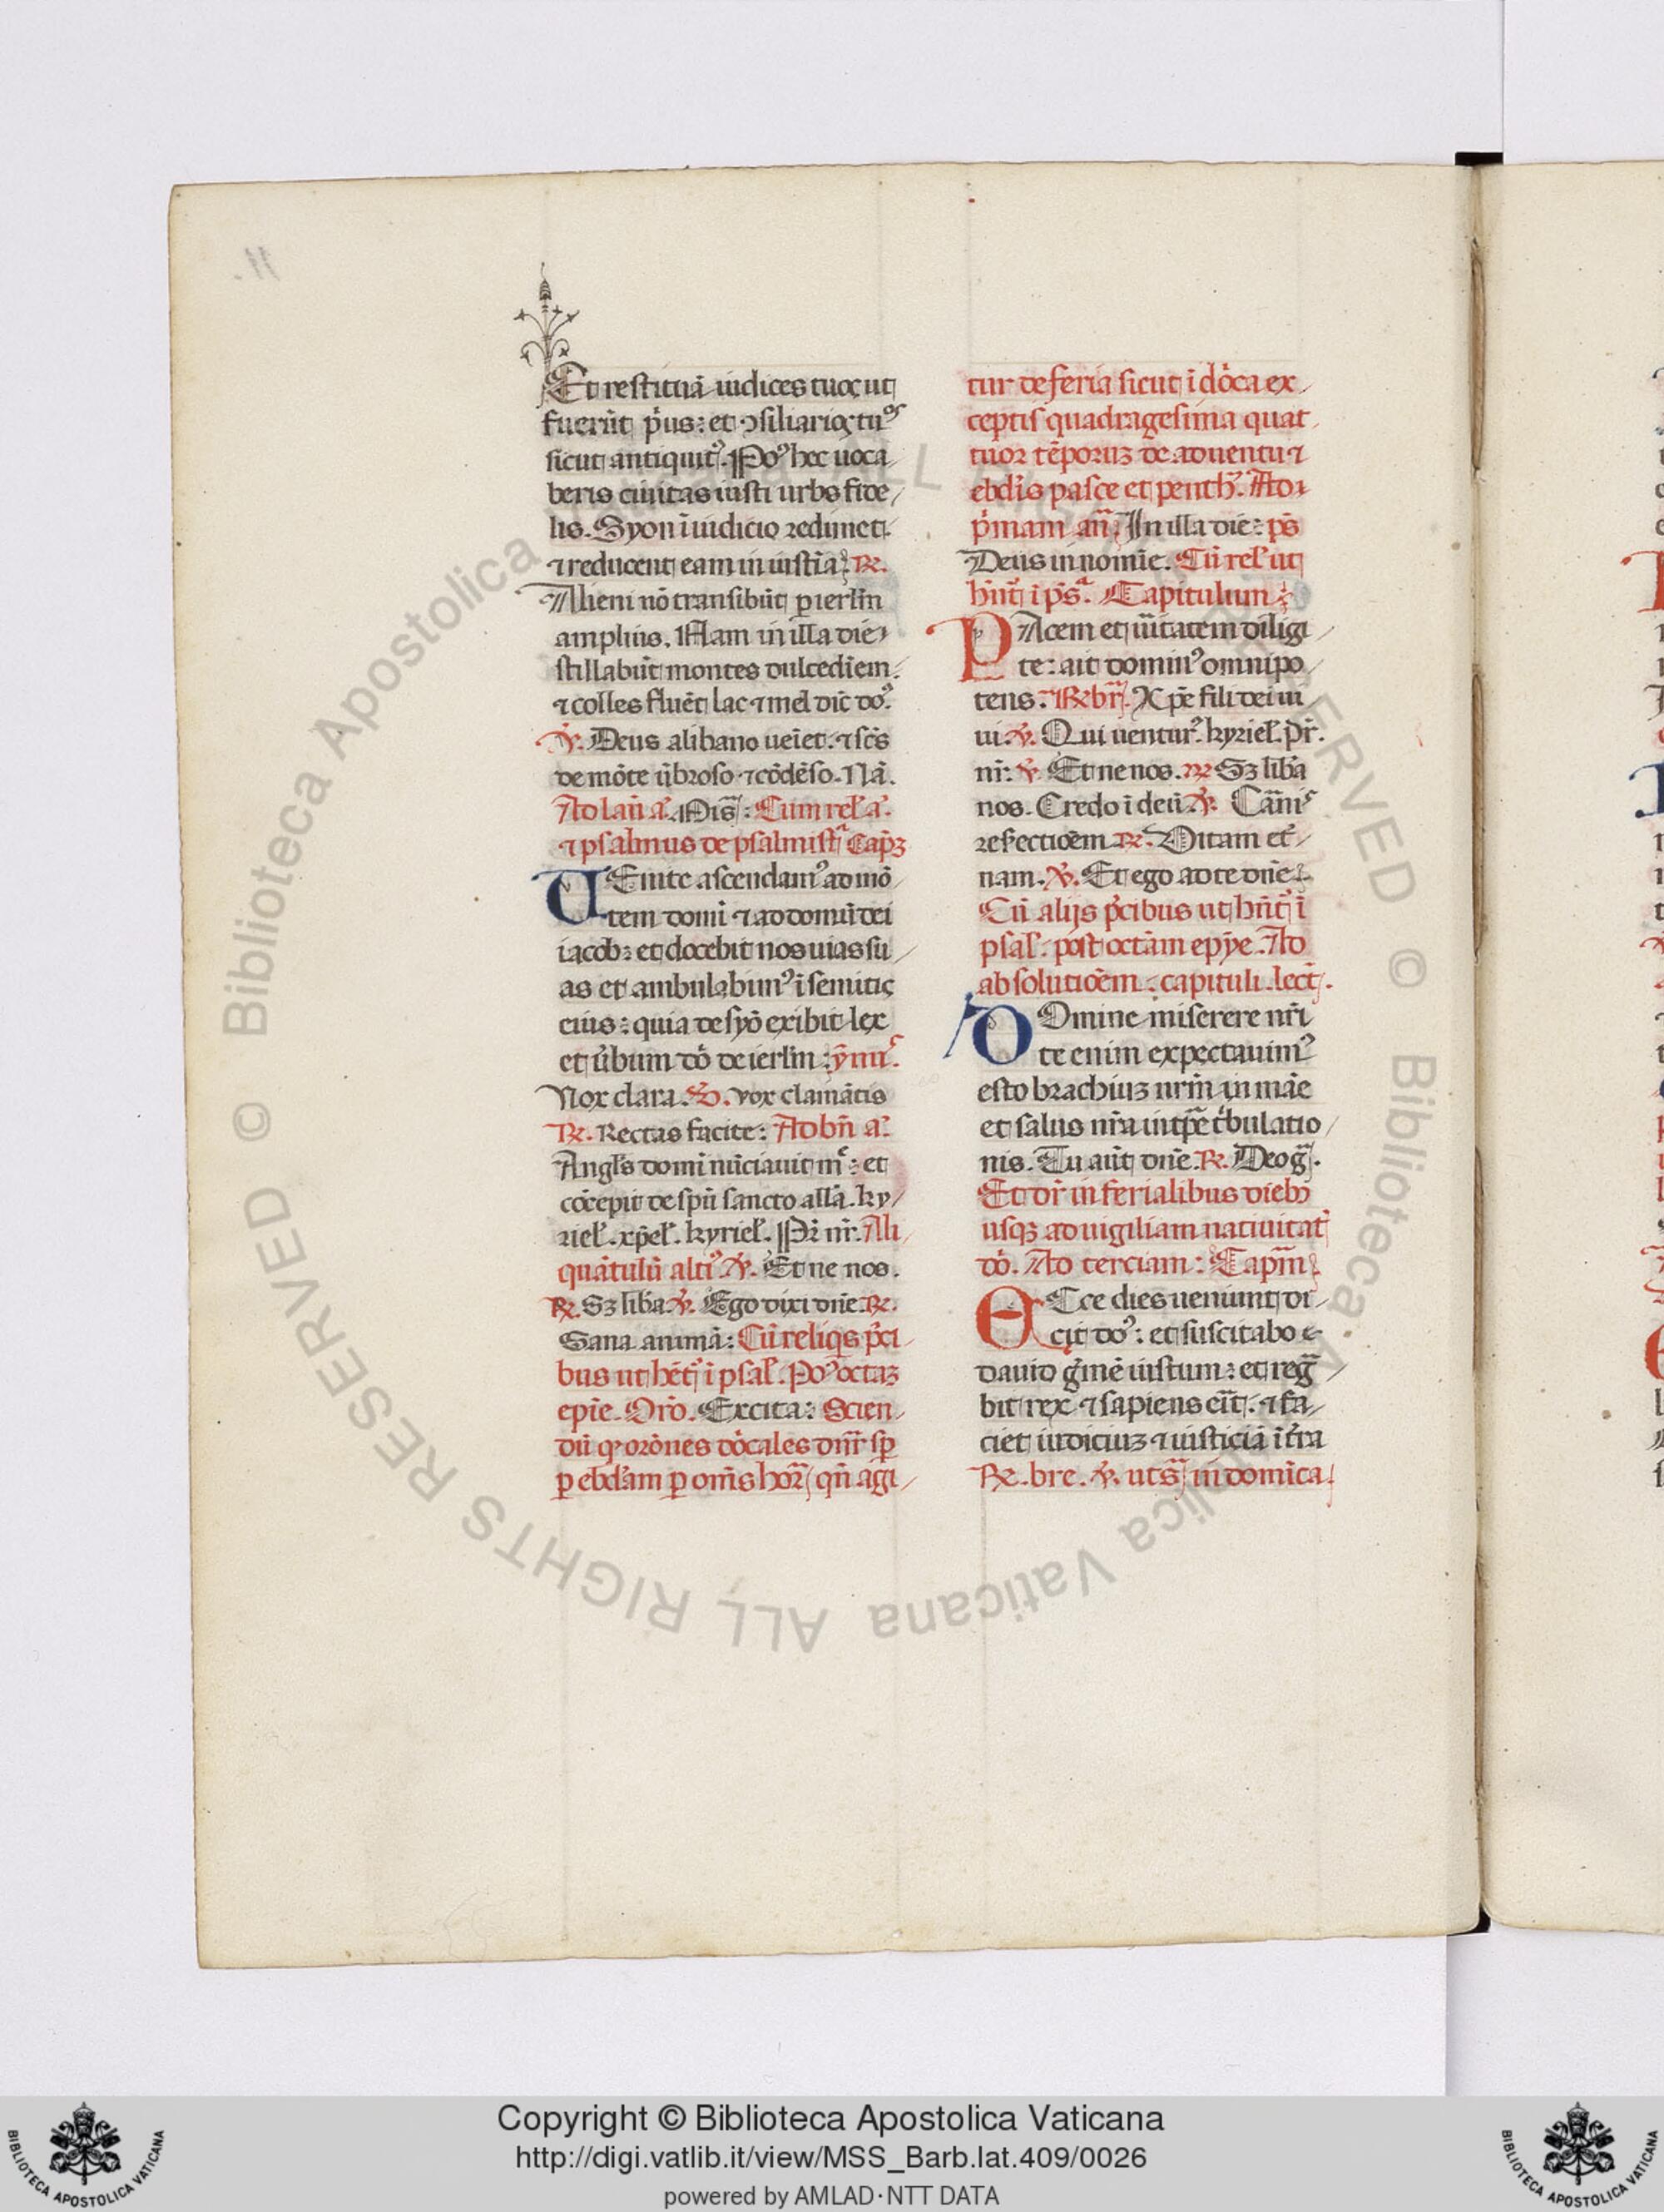 Et restituā iudices tuoꝝ ut
fuerūt pͥus: et ꝯsiliarioꝝ tuos
sicut antiquitꝰ. Poꝰ hec uoca
beris ciuitas iusti urbs fide
lis. Syon ī iudicio redimet᷑
⁊ reducent eam in iusticia. ℞.
Alieni nō transibūt ꝑ ierlm̄
amplius. Nam in illa die
stillabūt montes dulcediēm
⁊ colles fluēt lac ⁊ mel dic̄ do᷒.
℣. Deus a libano ueīet. ⁊ sc̄s
de mōte ūbroso ⁊ cōdēso. Nā.
Ad lau a. Pis: Cum rel a.
⁊ psalmus de psalmist Capꝫ
UEnite ascendamꝰ ad mō
tem domī ⁊ ad domū dei
iacob: et docebit nos uias su
as et ambulabimꝰ ī semitis
eius: quia de syō exibit lex
et u̇bum dō de ierlm̄: ymꝰ
Nox clara. ℣. vox clamātis
℞. Rectas facite: Ad bn̄ a.
Angls domī nūciauit mͤ: et
cōcepit de spū sancto allā. ky
riel. xp̄el. kyriel. Pr̄ nr̄. Ali
quātulū altiꝰ ℣. Et ne nos.
℞. Sꝫ liba ℣. Ego dixi dn̄e ℞.
Sana animā: Cū reliqis pͥci
bus ut hēt᷑ ī psal. Poꝰ octaꝫ
epīe. Orō. Excita: Scien
dū ꝙ orōnes dōcales dn̄r sꝑ
ꝑ ebdam ꝑ om̄s hor qn̄ agi
tur de feria sicut ī dōca ex
ceptis quadragesima quat
tuor tēporuꝫ de aduentu ⁊
ebdis pasce et penth. Ad
pͥmam an̄. In illa die: ps̄
Deus in nomīe. Cū rel ut
hn̄t᷑ ī ps. Capitulum
PAcem et ūitatem diligi
te: ait dominꝰ omnipo
tens. Rebr. Xp̄e fili dei ui
ui. ℣. Qui uentur. kyriel. Pr̄.
nr̄. ℣. Et ne nos. ℞ Sꝫ liba
nos. Credo ī deū ℣. Carnis
refectioēm ℞. Uitam et
nam. ℣. Et ego ad te dn̄e
Cū alijs pͥcibus ut hn̄t᷑ ī
psal. post octām epyē. Ad
absolutioēm. capituli. lect.
DOmine miserere nrī
te enim expectauimꝰ
esto brachiuꝫ nrm̄ in māe
et salus nrā in tp̄e tbulatio
nis. Tu aūt dn̄e. ℞. Deo g.
Et dr̄ in ferialibus diebꝫ
usqꝫ ad uigiliam natiuitat
dō. Ad terciam: Capm̄
ECce dies ueniunt di
cit doꝰ: et suscitabo
dauid gͥmē iustum: et reg
bit rex ⁊ sapiens eīt. ⁊ fa
ciet iudiciuꝫ ⁊ iusticiā ī tra
℞. bre. ℣. ut s in domica.
Copyright © Biblioteca Apostolica Vaticana
http://digi.vatlib.it/view/MSS_Barb.lat.409/0026
powered by AMLAD·NTT DATA